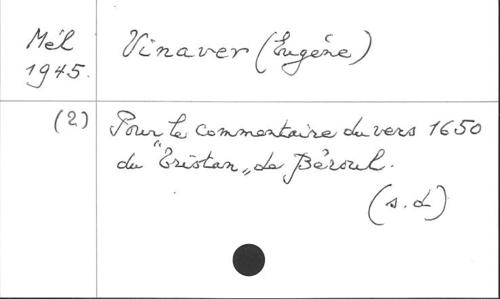 Mél Vinaver (Eugène)
1945.
(2) Pour le commentaire du vers 1650
du "Tristan" de Béroul.
(s.d)